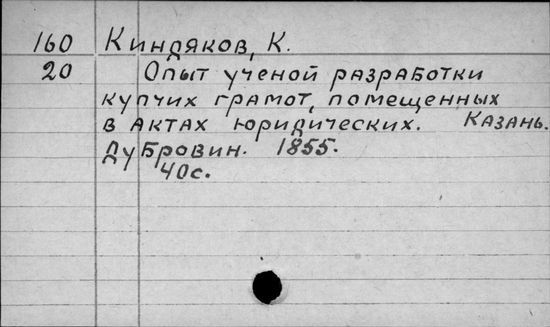 160 Киндяков, К.
20 Опыт ученой разработки
купчих грамот, помещенных
в Актах юридических. Казань.
Дубровин. 1855.
40с.